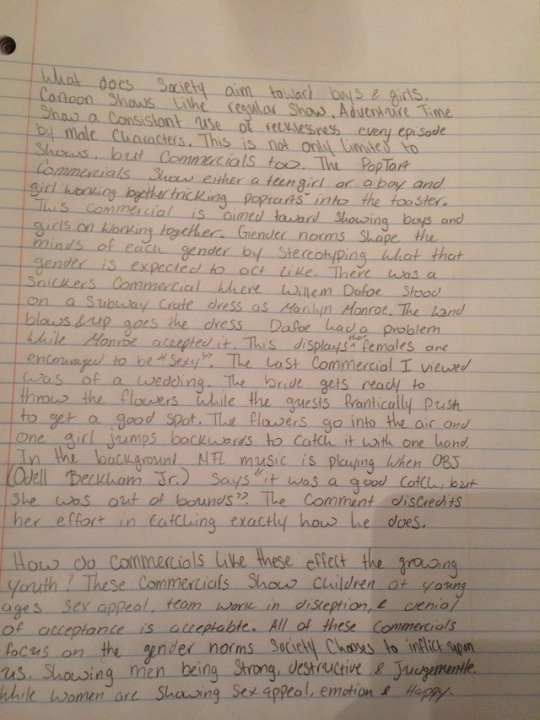 What does Society aim toward boys & girls.
Cartoon Shows Like regular Show, Adventure Time
Show a Consistant use of recklessness every episode
by male Characters. This is not only limited to
Shows, but Commercials too. The PopTart
Commercials Show either a teen girl or a boy and
girl working together tricking poptarts into the tooster.
This commercial is aimed toward showing boys and
girls on working together. Gender norms Shape the
minds of each gender by Stereotyping what that
gender is expected to act like. There was a
Snickers Commercial where Willem Dafoe Stood
on a Subway Crate dress as Marilyn Monroe. The wind
blows & up goes the dress Dafoe had a problem
while Monroe accepted it. This displays that females are
encouraged to be "Sexy". The Last Commercial I viewed
was of a wedding. The bride gets ready to
throw the flowers while the guests frantically push
to get a good spot. The flowers go into the air and
one girl jumps backwards to catch it with one hand.
In the background NFL music is playing when OBJ
(Odell Beckham Jr.) Says "it was a good catch, but
She was out of bounds". The Comment discredits
her effort in catching exactly how he does.
How do Commercials Like these effect the growing
youth? These Commercials Show Children at young
ages Sex appeal, team work in disception, & denial
of acceptance is acceptable. All of these Commercials
focus on the gender norms Society Chooses to inflict upon
us. Showing men being Strong, destructive & Judgementle.
While women are Showing Sex appeal, emotion & Happy.